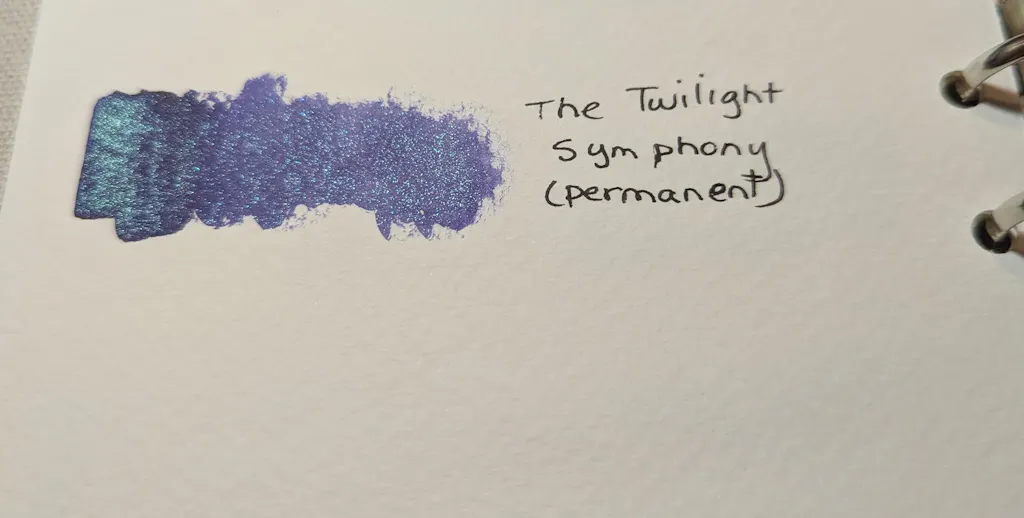 The Twilight
Symphony
(permanent)